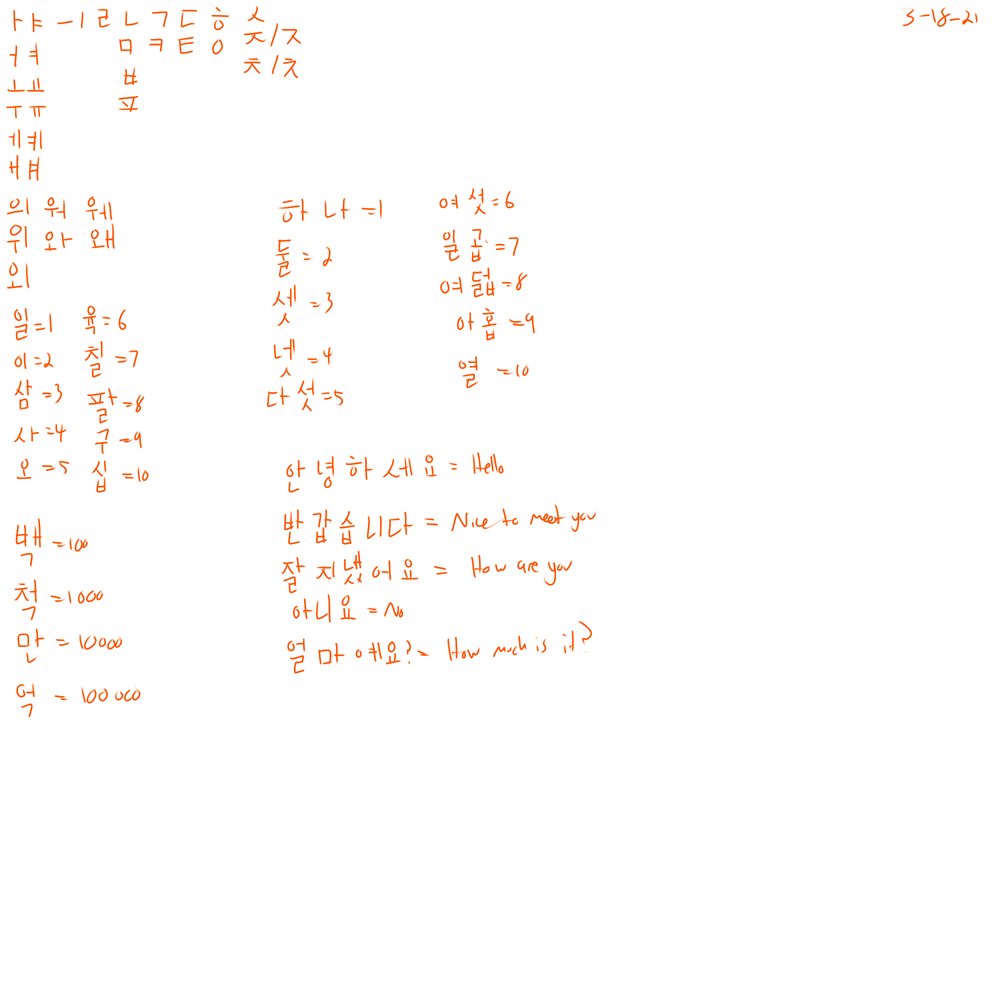 ㅏㅑ ㅡㅣㄹㄴㄱㄷㅎㅅ
ㅓㅕ ㅁㅋㅌㅇㅈ/ㅈ
ㅗㅛ ㅂ ㅊ/ㅊ
ㅜㅠ ㅍ
ㅔㅖ
ㅐㅒ
3-18-21
의 워 웨
위 와 왜
외
일=1 육=6
이=2 칠=7
삼=3 팔=8
사=4 구=9
오=5 십=10
백=100
척=1000
만=10000
억=100000
하나=1 여섯=6
둘=2 일곱=7
셋=3 여덟=8
넷=4 아홉=9
다섯=5 열=10
안녕하세요=Hello
반갑습니다=Nice to meet you
잘지냈어요=How are you
아니요=No
얼마예요?=How much is it?